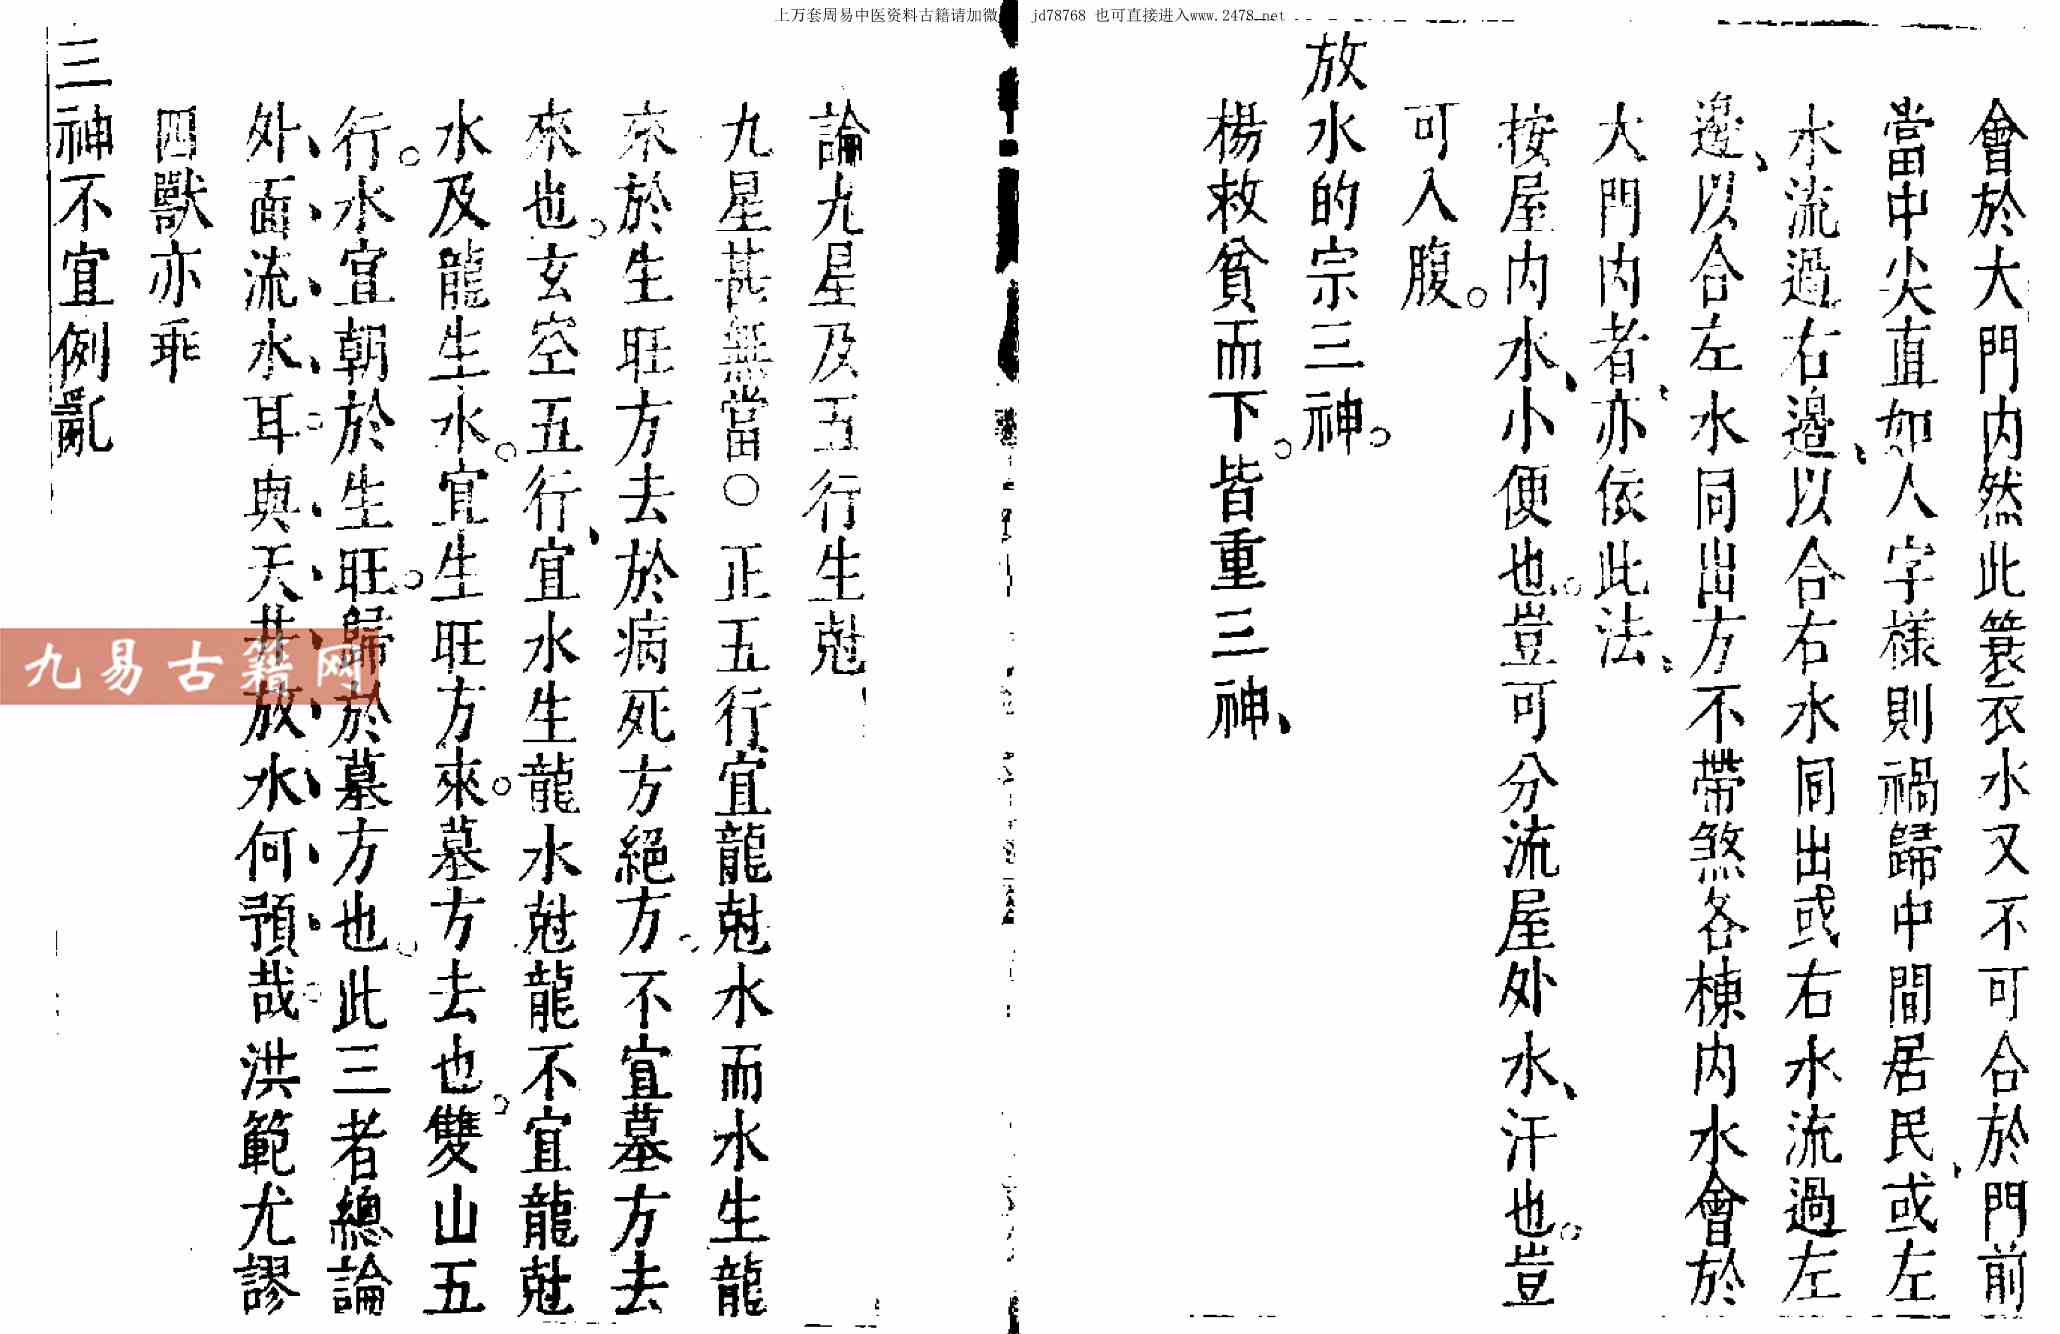 上万套周易中医资料古籍请加微 jd78768 也可直接进入www.2478.net
會於大門内然此簑衣水又不可合於門前
當中尖直如人字樣則禍歸中間居民或左
水流過右邉、以合右水同出或右水流過左
邉、以合左水同出方不帶煞各棟内水會於
大門内者、亦依此法、
按屋内水、小便也。豈可分流屋外水、汗也。豈
可入腹。
放水的宗三神。
楊救貧而下。皆重三神、
論九星及五行生尅
九星甚無當○正五行宜龍尅水而水生龍
來於生旺方去於病死方絕方。不宜墓方去
來也。玄空五行、宜水生龍水尅龍不宜龍尅
水及龍生水。宜生旺方來。墓方去也。雙山五
行。水宜朝於生旺。歸於墓方也。此三者總論
外、面、流、水、耳。與、天、井、放、水、何、預、哉。洪範尤謬
四獸亦乖
三神不宜例亂
九易古籍网